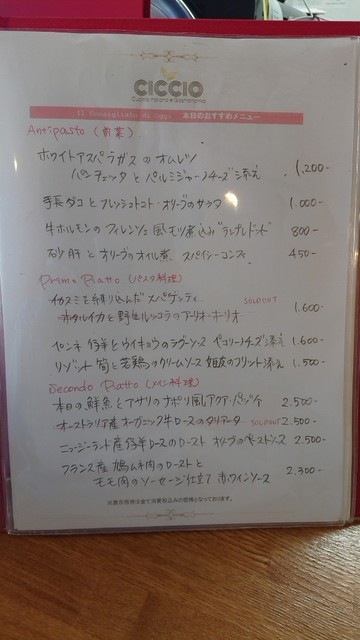 CICCIO
Cucina Italiana e Gastronomia
Il Consigliato di Oggi 本日のおすすめメニュー
Antipasto (前菜)
ホワイトアスパラガスのオムレツ
パンチェッタとパルミジャーノチーズ添え 1,200-
手長ダコとフレッシュトマト・オリーブのサラダ 1,000-
牛ホルモンのフィレンツェ風モツ煮込み"ランプレドット" 800-
砂肝とオリーブのオイル煮、スパイシーコンフィ 450-
Primo Piatto (パスタ料理)
イカスミを練り込んだスパゲッティ SOLDOUT
ホタルイカと野生ルッコラのアーリオ・オーリオ 1.600-
ペンネ 仔羊とウイキョウのラグーソース ペコリーノチーズ添え 1.600-
リゾット 筍と若鶏のクリームソース 添え 1.500-
Secondo Piatto (メイン料理)
本日の鮮魚とアサリのナポリ風アクア・パッツァ 2.500-
オーストラリア産オーガニック牛ロースのタリアータ SOLDOUT 2.500-
ニュージーランド産仔羊ロースのロースト オリーブのペーストソース 2.500-
フランス産 鳩ムネ肉のローストと
モモ肉のソーセージ仕立て 赤ワインソース 2.300-
※表示価格は全て消費税込みの価格となっております。